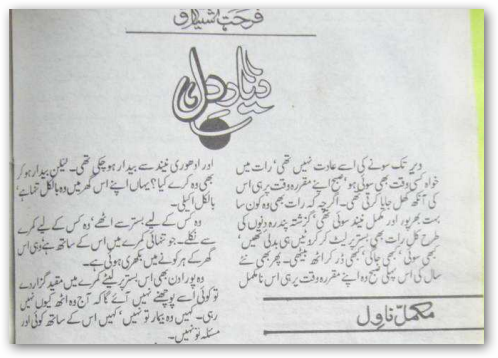 فرحت اشتیاق
دیار دل
دیر تک سونے کی اسے عادت نہیں تھی‘ رات میں
خواہ کسی وقت بھی سوئی ہو‘ صبح اپنے مقررہ وقت پر ہی اس
کی آنکھ کھل جایا کرتی تھی۔ اگرچہ کہ رات بھی وہ کون سا
بہت بھرپور اور مکمل نیند سوئی تھی‘ گزشتہ پندرہ دنوں کی
طرح کل رات بھی بستر پر لیٹ کر کروٹیں ہی بدلی تھیں‘
کبھی سوئی‘ کبھی جاگی‘ کبھی ڈر کر اٹھ بیٹھی۔ پھر بھی نئے
سال کی اس پہلی صبح وہ اپنے مقررہ وقت پر ہی اس نامکمل
مکمل ناول
اور ادھوری نیند سے بیدار ہو چکی تھی۔ لیکن بیدار ہو کر
بھی وہ کرے کیا؟ یہاں اپنے اس گھر میں وہ بالکل تنہا ہے‘
بالکل اکیلی۔
وہ کس کے لیے بستر سے اٹھے‘ وہ کس کے لیے کمرے
سے نکلے۔ جو تنہائی کمرے میں اس کے ساتھ ہے وہی اس
گھر کے ہر کونے میں بکھری ہوئی ہے۔
وہ پورا دن بھی اس بستر پر لیٹے کمرے میں مقید گزار دے
تو کوئی اسے پوچھنے نہیں آئے گا کہ آج وہ اٹھ کیوں نہیں
رہی۔ کہیں وہ بیمار تو نہیں‘ کہیں اس کے ساتھ کوئی اور
مسئلہ تو نہیں۔